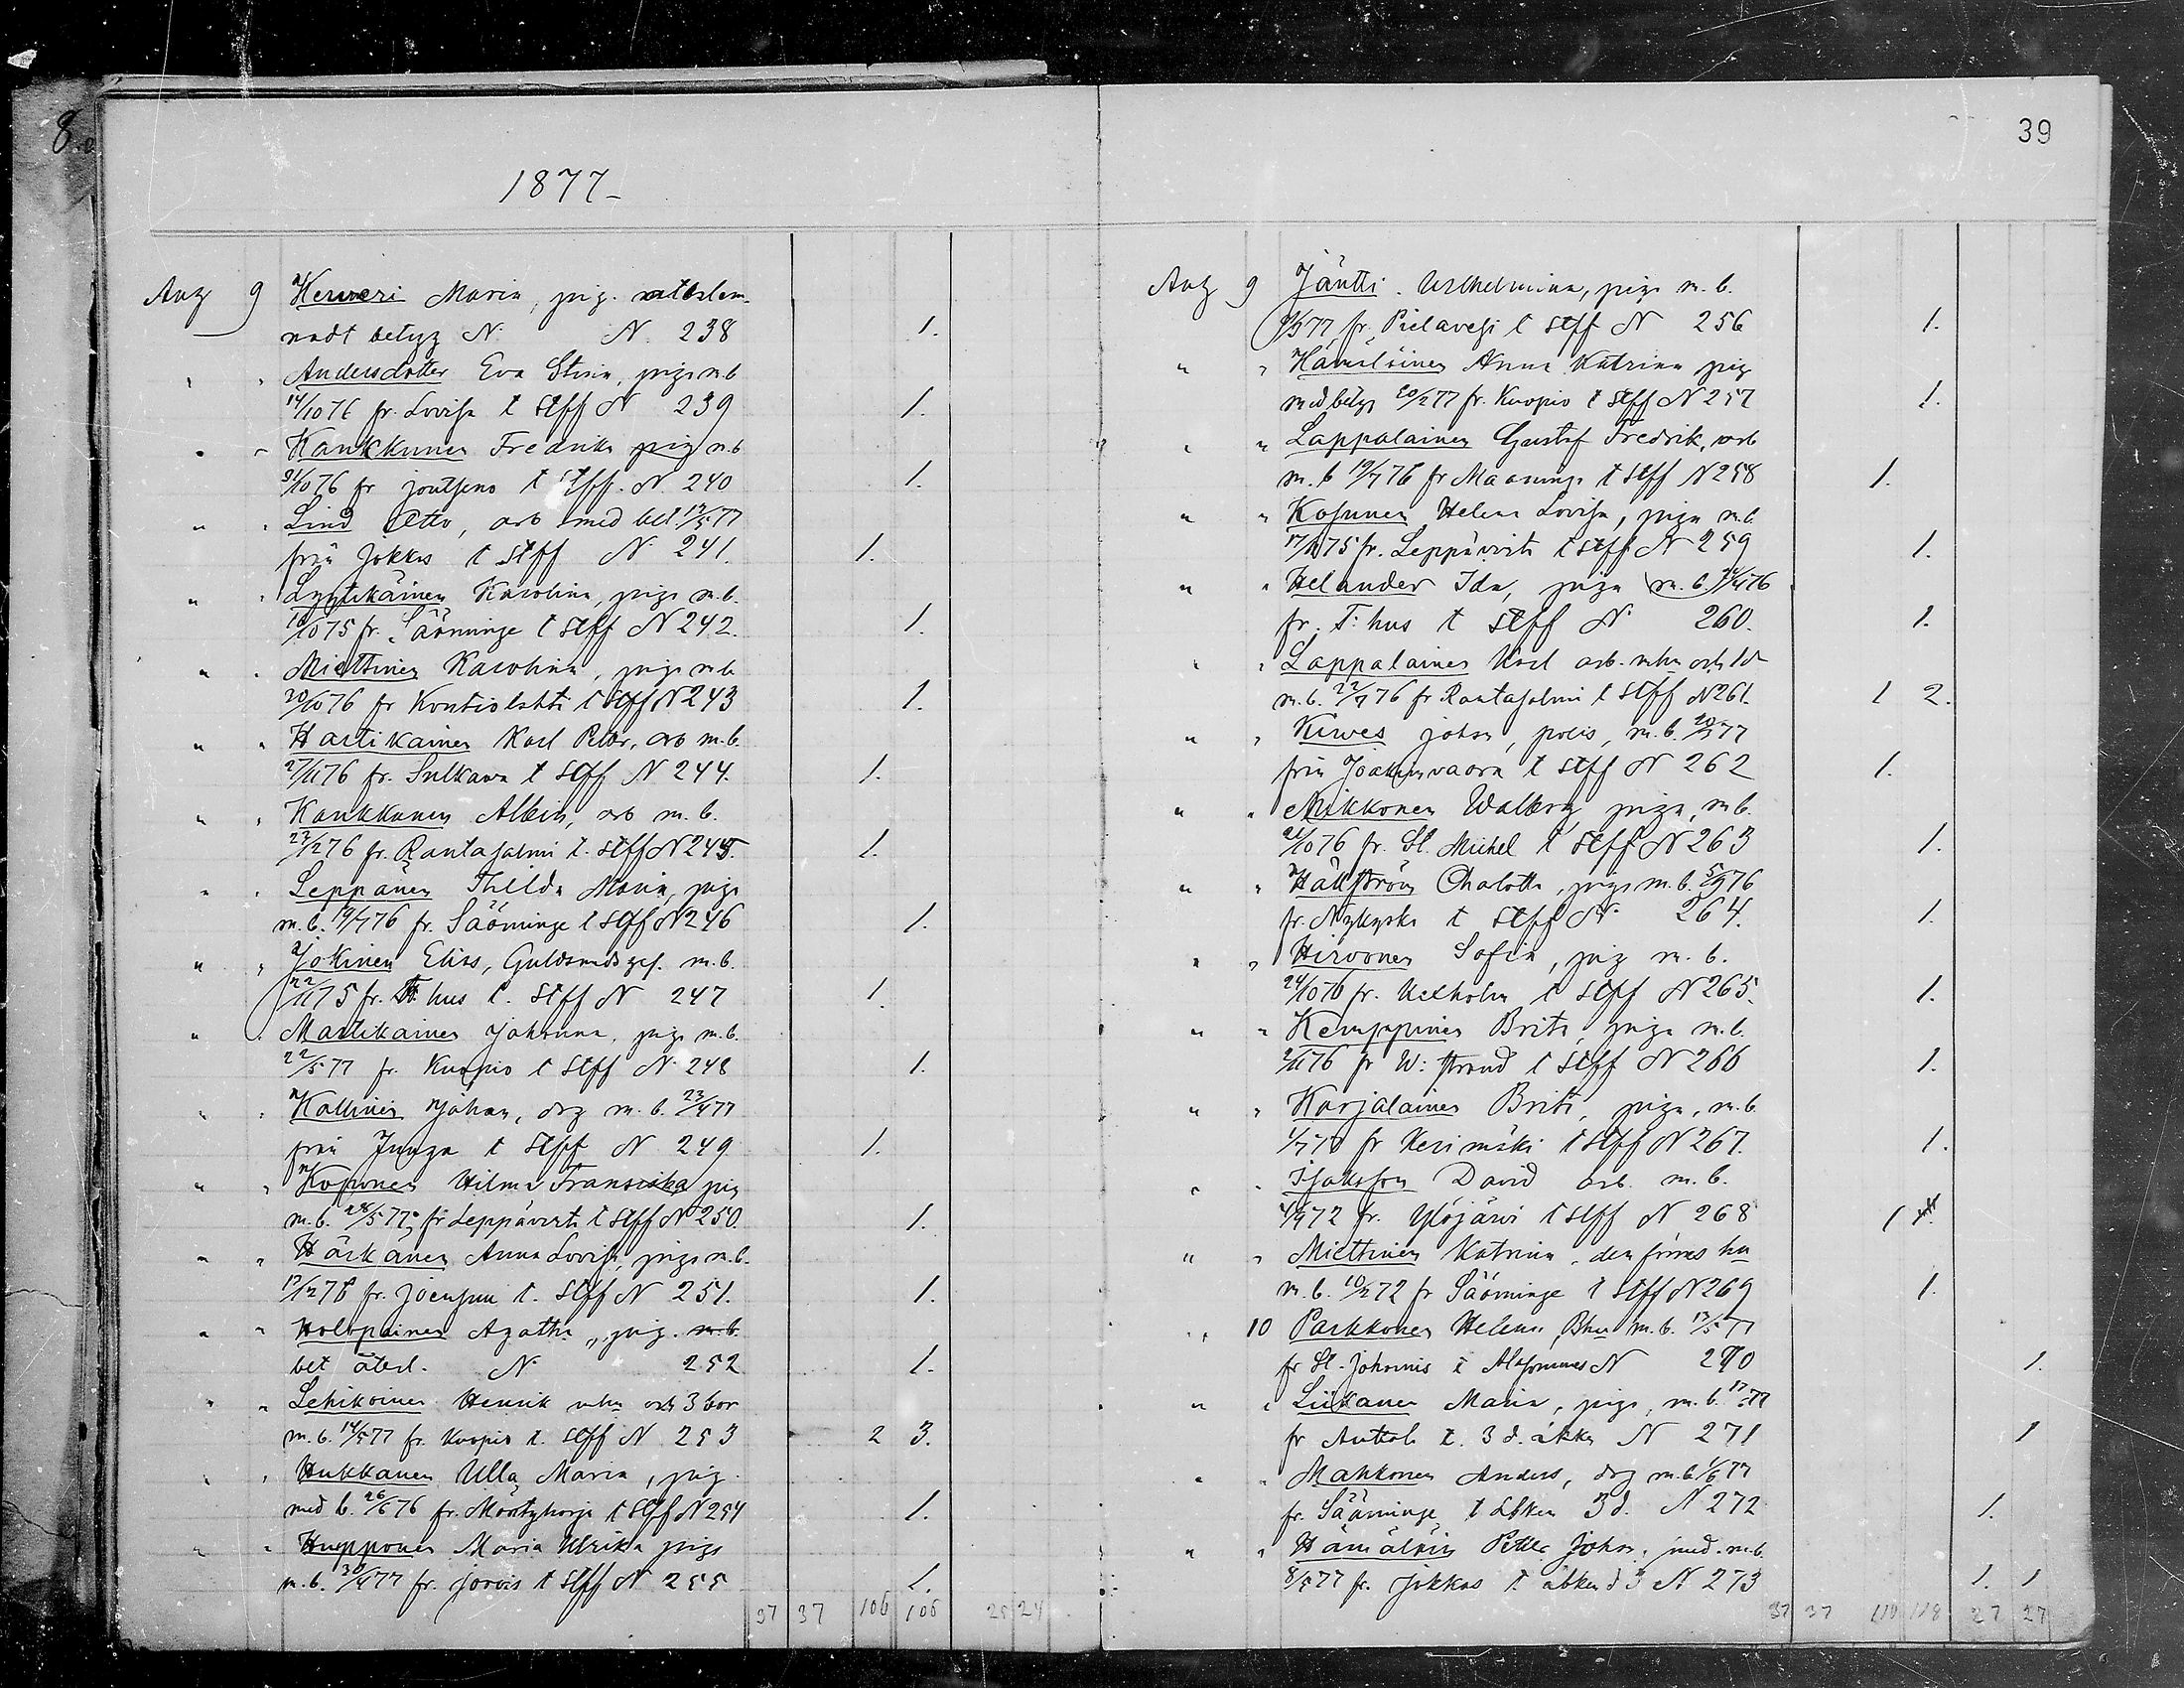 39
1877
Aug 9 Kerveri Maria, pig.
nadt betyg N. N. 238 1.
" " Andersdotter Eva Stina, piga m.b
14/10 76 fr. Lovisa t Stff N 239 1.
" " Kankkunen Fredrika pig m.b
31/10 76 fr Joutseno t Stff. N. 240 1.
" " Lind Otto, arb med bet 12/5 77
från Jokkas t Stff N. 241. 1.
" " Lyytikäinen Karolina, piga m.b.
10/10 75 fr. Sääminge t Stff N 242. 1.
" " Miettinen Karolina, piga m.b
20/10 76 fr Kontiolahti t Stff N 243 1.
" " Hartikainen Karl Petter, arb m.b.
27/11 76 fr. Sulkava t Stff N 244. 1.
" " Kankkunen Albin, arb m.b.
23/12 76 fr. Rantasalmi t. Stff N 245. 1.
" " Leppänen Thilda Maria, piga
m.b. 19/7 76 fr. Sääminge t Stff N 246 1.
" " Jokinen Elias, Guldsmedsges. m.b.
22/11 75 fr. T. hus t. Stff N 247 1.
" " Martikainen Johanna, piga m.b.
22/5 77 fr. Kuopio t Stff N. 248 1.
" " Kallinen Johan, drg m.b. 23/4 77
från Junga t Stff N 249 1.
" " Koponen Hilma Fransiska pig
m.b. 28/5 77 fr Leppävirta t Stff N 250. 1.
" " Härkänen Anna Lovisa, piga m.b.
17/12 76 fr. Joensuu t. Stff N 251. 1.
" " Holopainen Agatha, pig. m.b.
bet återl. N 252 1.
" " Lehikoinen Henrik och 3 bar
m.b. 14/5 77 fr. Kuopio t. Stff N 253 2 3.
" " Hukkanen Ulla Maria, pig
med b. 26/6 76 fr. Mäntyharju t Stff N 254 1.
" " Hupponen Maria Ulrika piga
m.b. 30/4 77 fr. Jorois t Stff N 255 1.
37 37 106 106 25 24
Aug 9 Jäntti Wilhelmina, piga m.b.
fr. Pielavesi t Stff N 256 1.
" " Hämäläinen Anna Katrina pig
med betyg 20/2 77 fr. Kuopio t Stff N 257 1.
" " Lappalainen Gustaf Fredrik, arb
m.b 19/7 76 fr Maaninga t Stff N 258 1.
" " Kosunen Helena Lovisa, piga m.b.
fr. Leppävirta t Stff N 259 1.
" " Helander Ida, piga m.b. 76
fr. T: hus t Stff N 260. 1.
" " Lappalainen Karl arb. och 1 d
m.b. 22/7 76 fr Rantasalmi t Stff N 261. 1 2.
" " Kirves Johan, polis, m.b. 77
från Joakimvaara t Stff N 262 1.
" " Mikkonen Walborg, piga, m.b.
21/10 76 fr. St. Michel t Stff N 263 1.
" " Hällström Chalotta, piga m.b. 5/9 76
fr. Nykyrka t Stff N. 264. 1.
" " Hirvonen Sofia, pig m.b.
24/10 76 fr. Kexholm t Stff N 265. 1.
" " Kemppinen Brita, piga m.b.
2/11 76 fr W: strand t Stff N 266 1.
" " Karjalainen Brita, piga, m.b.
fr Kerimäki t Stff N 267. 1.
" " Isaksson David arb. m.b.
72 fr. Ylöjärvi t Stff N 268 1
" " Miettinen Katrina, den förres hu
m.b. 72 fr Sääminge t Stff N 269 1.
" 10 Parkkonen Helena, m.b. 77
fr St. Johannis t N 270 1.
" " Liikanen Maria, piga, m.b. 77
fr Anttola t. 3 d. N 271 1
" " Mahkonen Anders, drg m.b. 1/6 77
fr. Sääminge t 3 d. N 272 1.
" " Hämäläin Petter Johan, m.b.
8/5 77 fr. Jokkas t d 3 N 273 1. 1
37 37 110 118 27 27